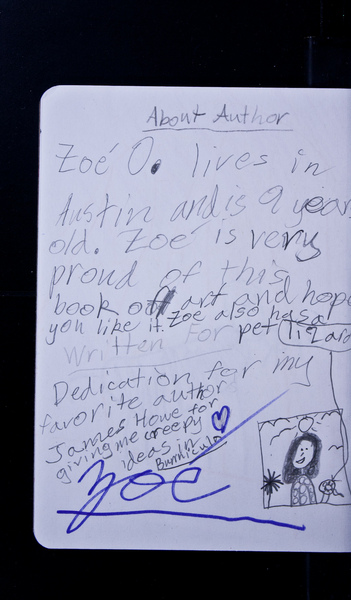 About Author
Zoé O. lives in
Austin and is 9 years
old. Zoé is very
proud of this
book of art and hope
you like it. Zoé also has a
Written For pet lizard
Dedication for my
favorite author
James Howe for
giving me creepy
ideas in
Bunniculo
Zoé